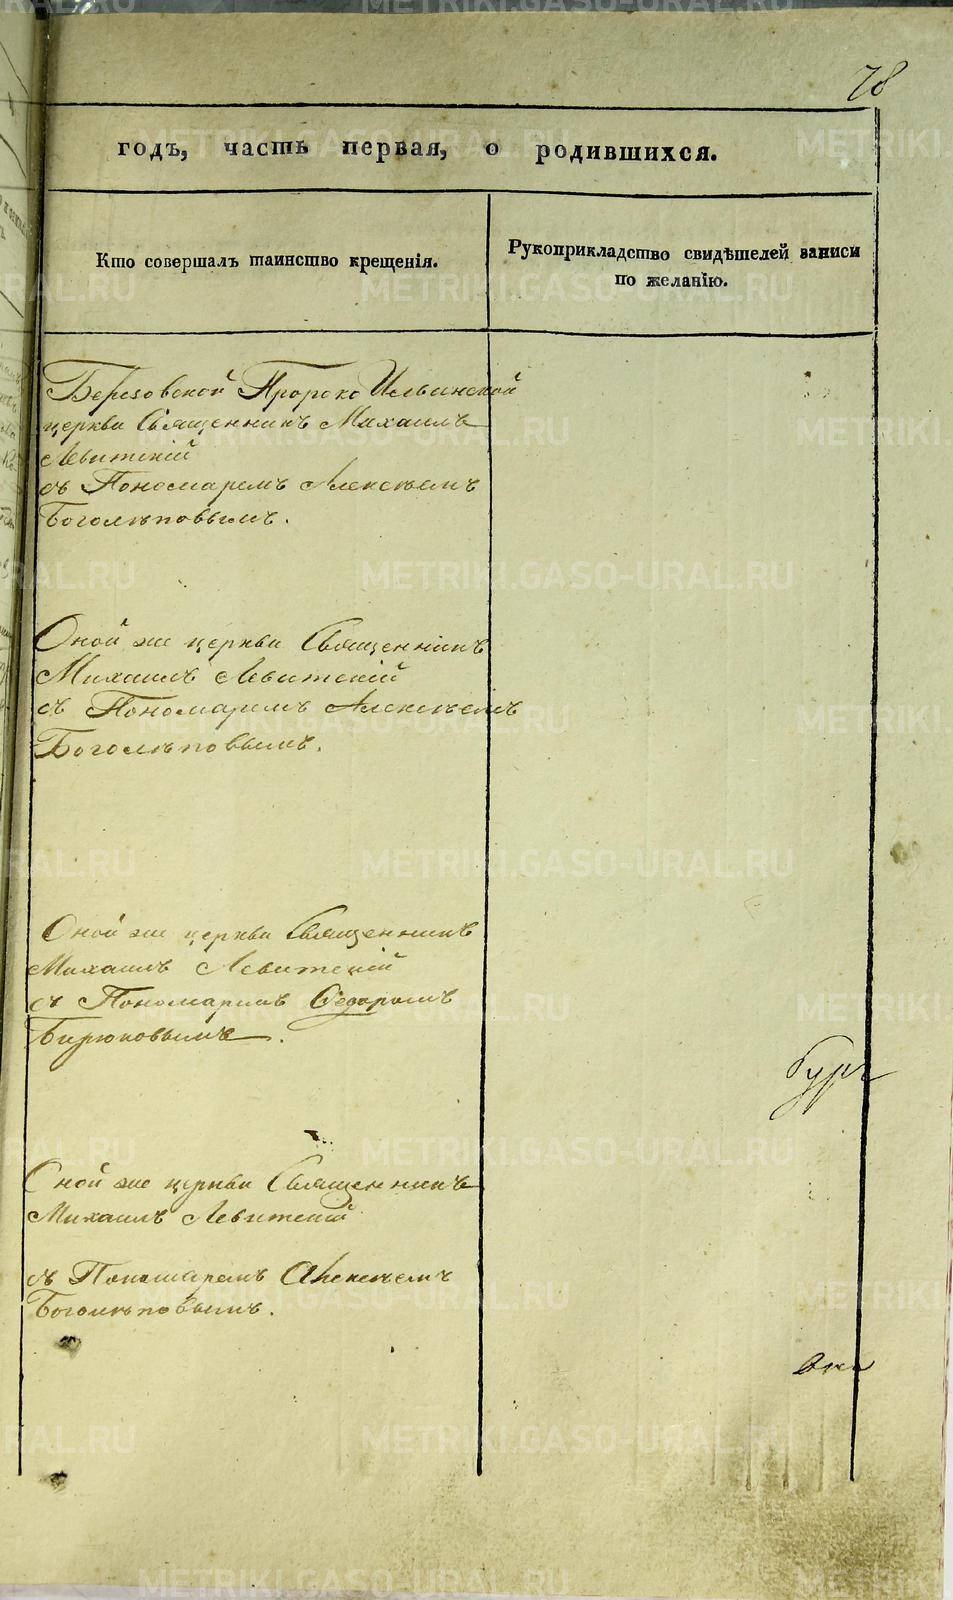 78
годъ, часть первая, о родившихся.
Кто совершалъ таинство крещенія.
Рукоприкладство свидѣтелей записи по желанію.
Березовской Пророко Ильинской
церкви Священникъ Михаилъ
Левитскій
съ Пономаремъ Алексѣемъ
Боголѣповымъ.
Оной же церкви Священникъ
Михаилъ Левитскій
съ Пономаремъ Алексѣемъ
Боголѣповымъ.
Оной же церкви Священникъ
Михаилъ Левитскій
съ Пономаремъ Ѳедоромъ
Бирюковымъ.
Оной же церкви Священникъ
Михаилъ Левитскій
съ Пономаремъ Алексѣемъ
Боголѣповымъ.
METRIKI.GASO-URAL.RU